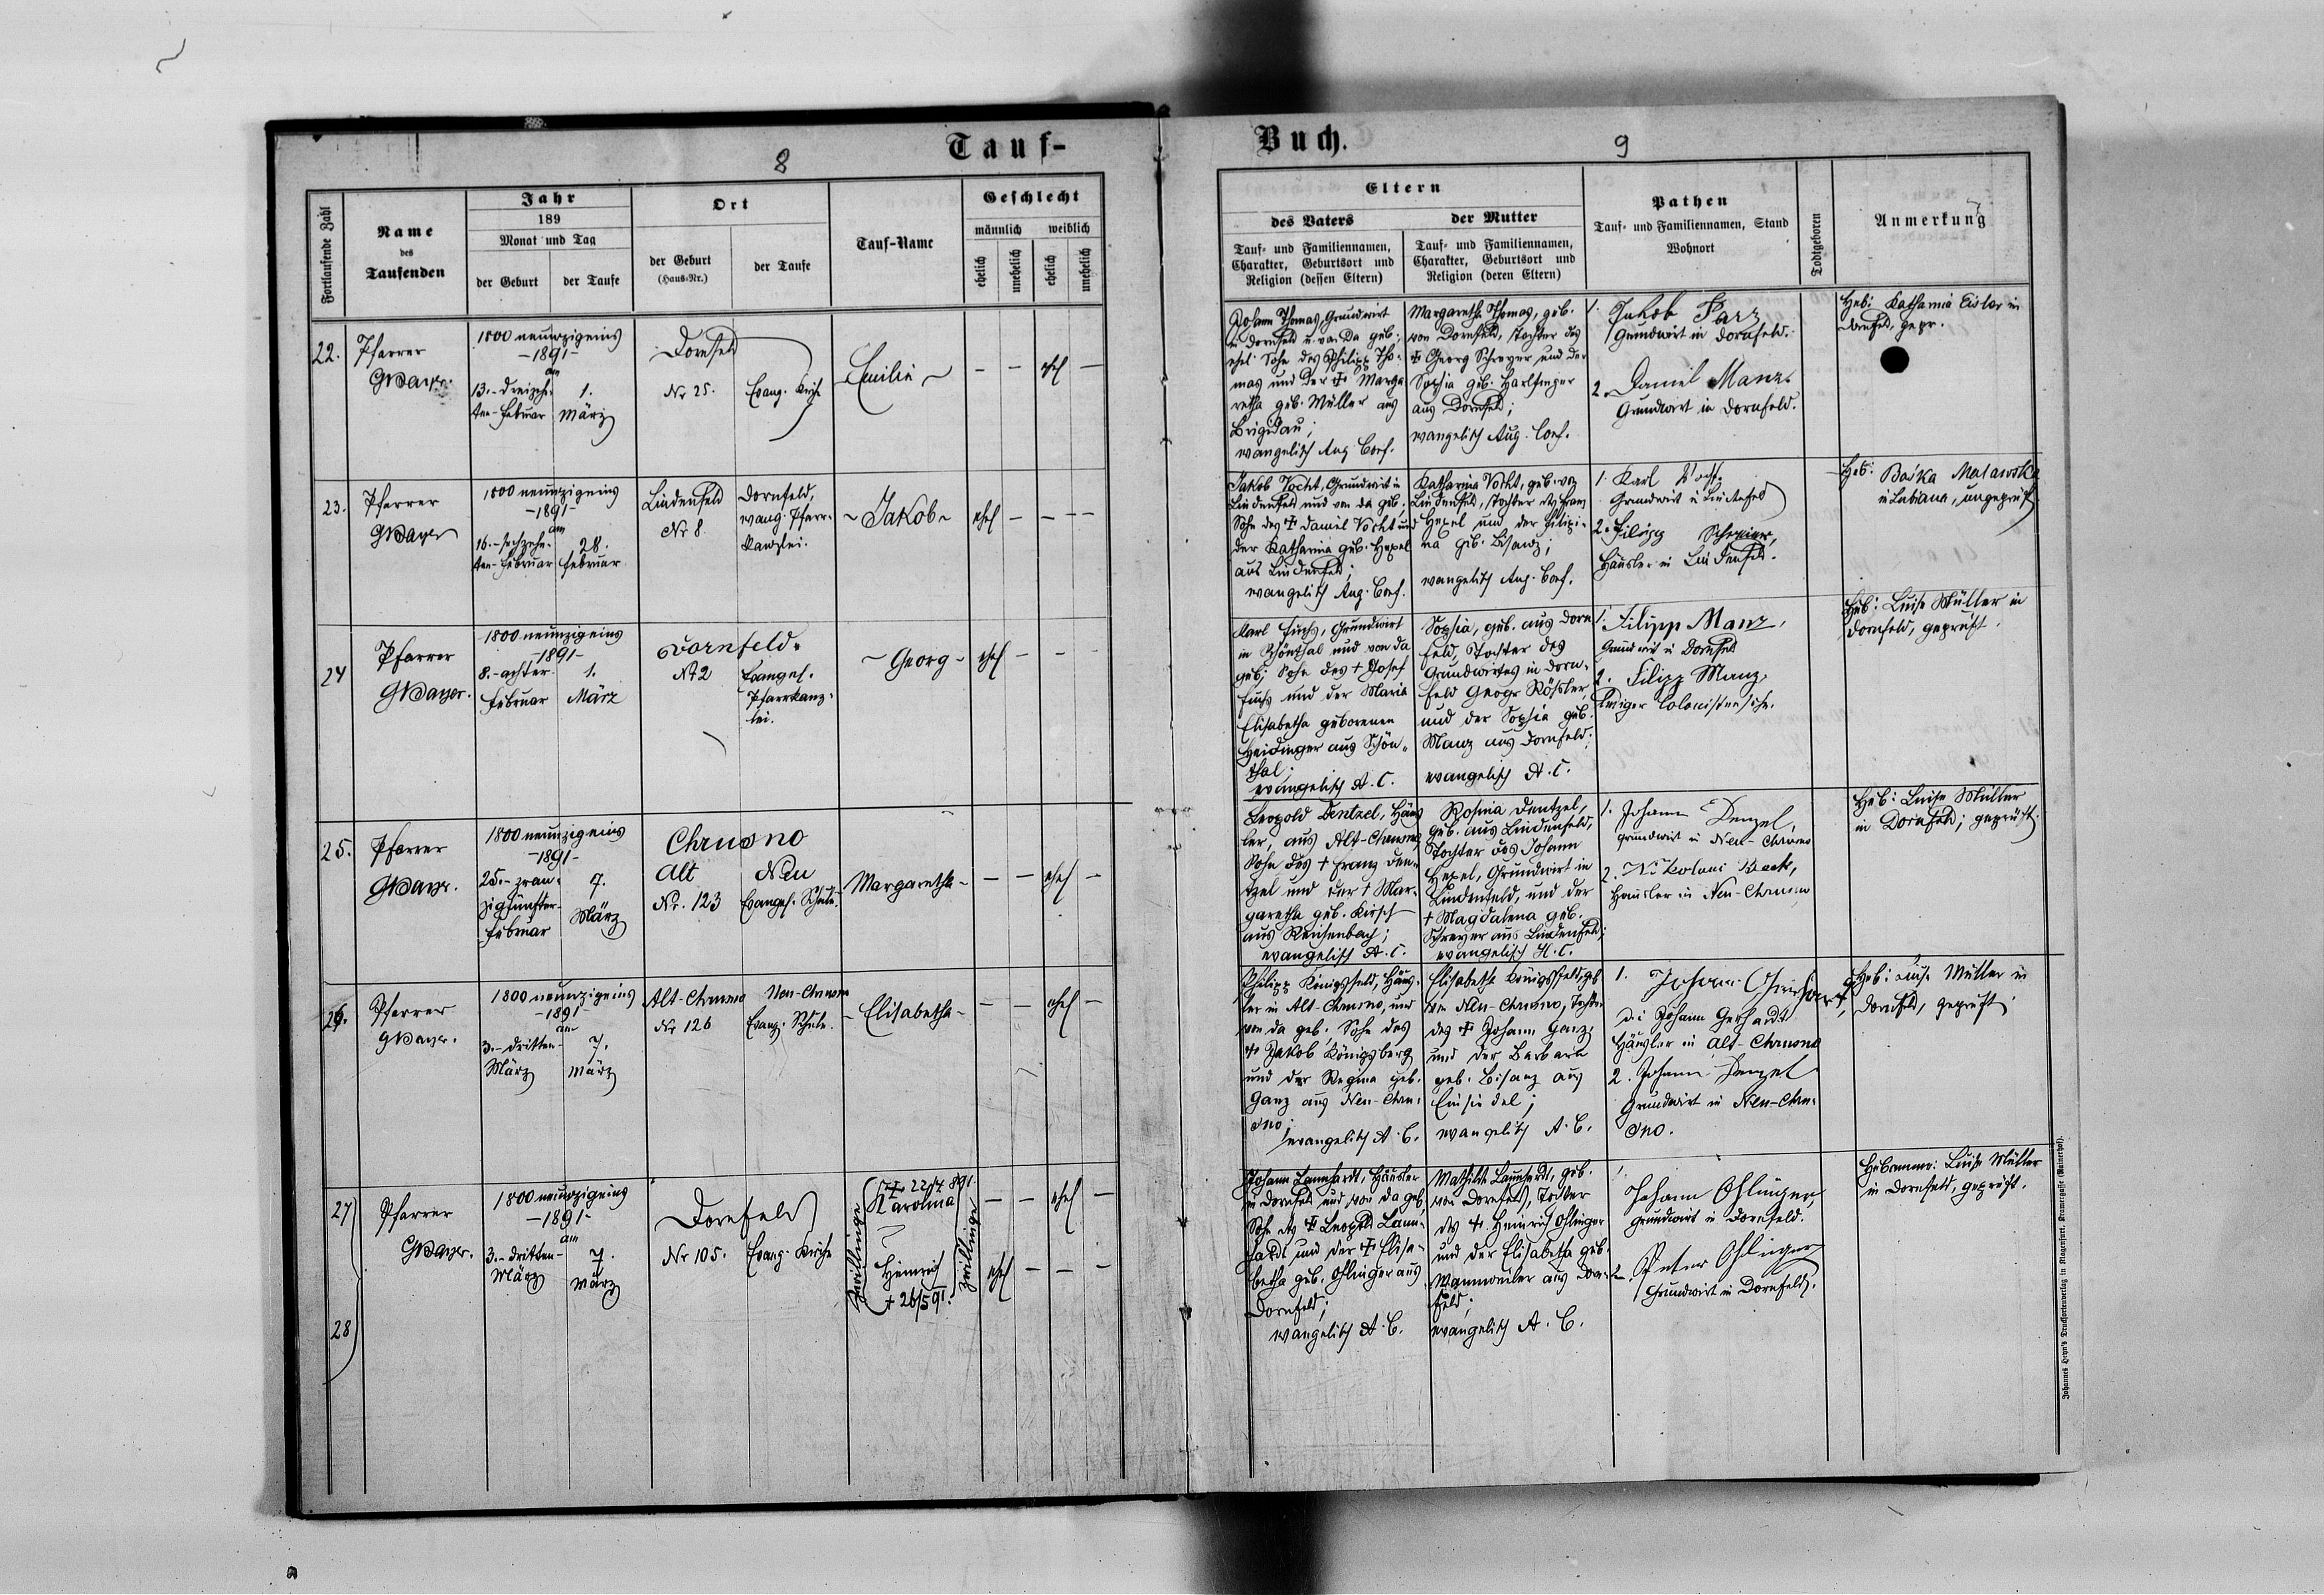 8
Tauf-
Fortlaufende Zahl
Name
des
Taufenden
Jahr
189
Monat und Tag
der Geburt
der Taufe
Ort
der Geburt
(Haus-Nr.)
der Taufe
Tauf-Name
Geschlecht
männlich
weiblich
ehelich
unehelich
ehelich
unehelich
22.
Pfarrer
GMayer.
1800 neunzigeins
-1891-
am
13.-dreizehn-
ten-Februar
1.
März
Dornfeld
Nr 25.
Evang. Kirche
Emilie
- - ehel -
23.
Pfarrer
GMayer
1800 neunzigeins
-1891-
am
16.-sechzehn-
ten-Februar
28.
Februar
Lindenfeld
Nr 8.
Dornfeld,
evang. Pfarr-
kanzlei.
-Jakob-
ehel - - -
24
Pfarrer
GMayer.
1800 neunzigeins
-1891-
8.-achter-
Februar
1.
März
Dornfeld.
Nr 2
Evangel.
Pfarrkanz-
lei.
-Georg-
ehel - - -
25.
Pfarrer
GMayer.
1800 neunzigeins
-1891-
25.-zwan-
zigfünfter-
Februar
7.
März
Chrusno
Alt
Neu
Nr. 123
Evangel. Schule.
Margaretha-
- - ehel -
26.
Pfarrer
GMayer.
1800 neunzigeins
-1891-
am
3.-dritten-
März
7.
März
Alt-Chrusno
Neu-Chrusno
Nr 126
Evang. Schule.
-Elisabetha-
- - ehel -
27
28
Pfarrer
GMayer.
1800 neunzigeins
-1891-
am
3.-dritten-
März
7.
März
Dornfeld
Nr 105.
Evang. Kirche
Zwillinge
Karolina
Heinrich
+ 26/5 91.
Zwillinge
- - ehel -
ehel - - -
Buch.
9
Eltern
des Vaters
der Mutter
Tauf- und Familiennamen,
Charakter, Geburtsort und
Religion (dessen Eltern)
Tauf- und Familiennamen,
Charakter, Geburtsort und
Religion (deren Eltern)
Pathen
Tauf- und Familiennamen, Stand
Wohnort
Todtgeboren
Anmerkung
Johann Thomas, Grundwirt
in Dornfeld u. von da geb.;
ehel. Sohn des Philipp Tho-
mas und der + Marga-
retha geb. Müller aus
Brigidau;
evangelisch Aug. Conf.
Margaretha Thomas, geb.
von Dornfeld, Tochter des
+ Georg Schreyer und der
Sophia geb. Harlfinger
aus Dornfeld;
evangelisch Aug. Conf.
1. Jakob Parz
Grundwirt in Dornfeld.
2. Daniel Manz
Grundwirt in Dornfeld.
Heb: Katharina Eisler in
Dornfeld, gepr.
Jakob Vocht, Grundwirt in
Lindenfeld und von da geb.;
Sohn des + Daniel Vocht und
der Katharina geb. Hexel
aus Lindenfeld;
evangelisch Aug. Conf.
Katharina Vocht, geb. von
Lindenfeld, Tochter des Franz
Hexel und der Filipi-
na geb. Bisanz;
evangelisch Aug. Conf.
1. Karl
Grundwirt in Lindenfeld
2. Filipp Schreier,
Häusler in Lindenfeld.
Heb: Baśka Malawska
in Lubiana, ungeprüft
Karl Fuchs, Grundwirt
in Schönthal und von da
geb.; Sohn des + Josef
Fuchs und der Maria
Elisabetha geborenen
Heidinger aus Schön-
thal;
evangelisch A. C.
Sophia, geb. aus Dorn
feld, Tochter des
Grundwirtes in Dorn-
feld Georg Rössler,
und der Sophia geb.
Manz aus Dornfeld;
evangelisch A. C.
1. Filipp Manz,
Grundwirt in Dornfeld
2. Filipp Manz,
lediger Colonistensohn.
Heb: Luise Müller in
Dornfeld, geprüft.
Leopold Dentzel, Häus
ler, aus Alt-Chrusno,
Sohn des + Franz Den-
tzel und der + Mar-
garetha geb. Kirsch
aus Reichenbach;
evangelisch A. C.
Rosina Dentzel,
geb. aus Lindenfeld,
Tochter des Johann
Hexel, Grundwirt in
Lindenfeld, und der
+ Magdalena geb.
Schreyer aus Lindenfeld;
evangelisch H. C.
1. Johann Denzel,
Grundwirt in Neu-Chrusno
2. Nikolaus Beck,
Häusler in Neu-Chrusno
Heb: Luise Müller
in Dornfeld; geprüft.
Philipp Königsfeld, Häus-
ler in Alt-Chrusno, und
von da geb.; Sohn des
+ Jakob Königsberg
und der Regina geb.
Ganz aus Neu-Chru-
sno;
evangelisch A. C.
Elisabetha Königsfeld, geb.
von Neu-Chrusno, Tochter
des + Johann Ganz,
und der Barbara
geb. Bisanz aus
Einsiedel;
evangelisch A. C.
1. Johann
d.i. Johann Gerhardt
Häusler in Alt-Chrusno
2. Johann Denzel
Grundwirt in Neu-Chru-
sno.
Heb: Luise Müller in
Dornfeld, geprüft
Johann Lannhardt, Häusler
in Dornfeld und von da geb.
Sohn des + Leopold Lann-
hardt und der + Elisa-
betha geb. Ohlinger aus
Dornfeld;
evangelisch A. C.
Mathilde Lannhardt, geb.
von Dornfeld, Tochter
des +. Heinrich Ohlinger
und der Elisabetha geb.
Wannweiler aus Dorn-
feld;
evangelisch A. C.
1.
Johann Ohlinger,
Grundwirt in Dornfeld.
2. Peter Ohlinger
Grundwirt in Dornfeld.
Hebamme: Luise Müller
in Dornfeld, geprüft.
Johannes Heyn's Drucksortenverlag in Klagenfurt, Kramergasse (Rainerhof).